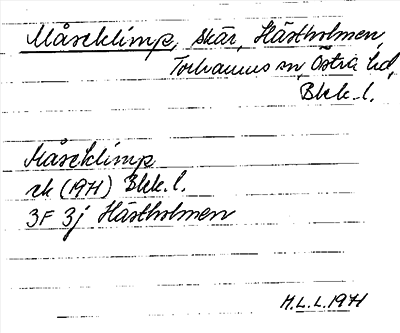 Måseklimp, skär, Hästholmen,
Torhamns sn, Östra hd,
Blek. l.
Måseklimp
ek (1971) Blek. l.
3F 3j Hästholmen
M.L.L. 1971